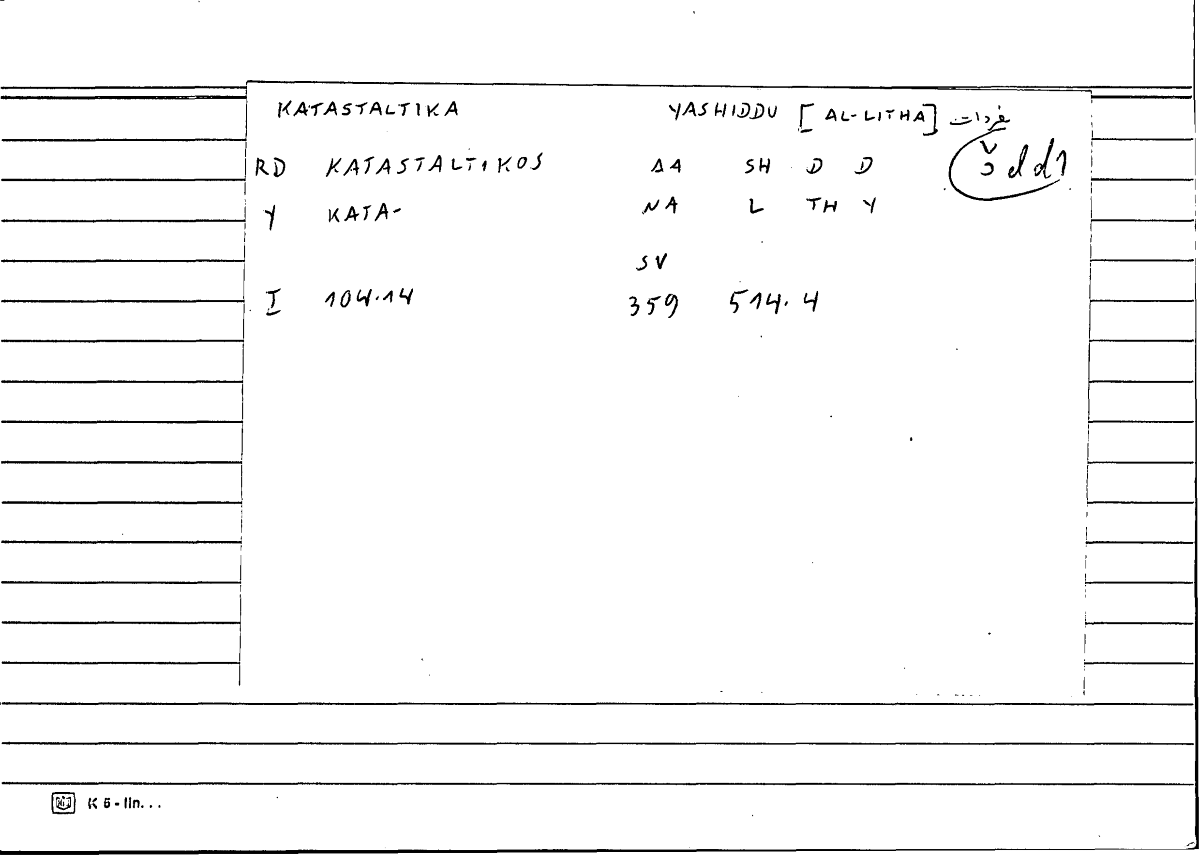 KATASTALTIKA YASHIDDU [AL-LITHA] مفردات
RD KATASTALTIKOS AA SH D D šdd1
Y KATA- NA L TH Y
SV
I 104.14 359 514.4
K 5 - lin...